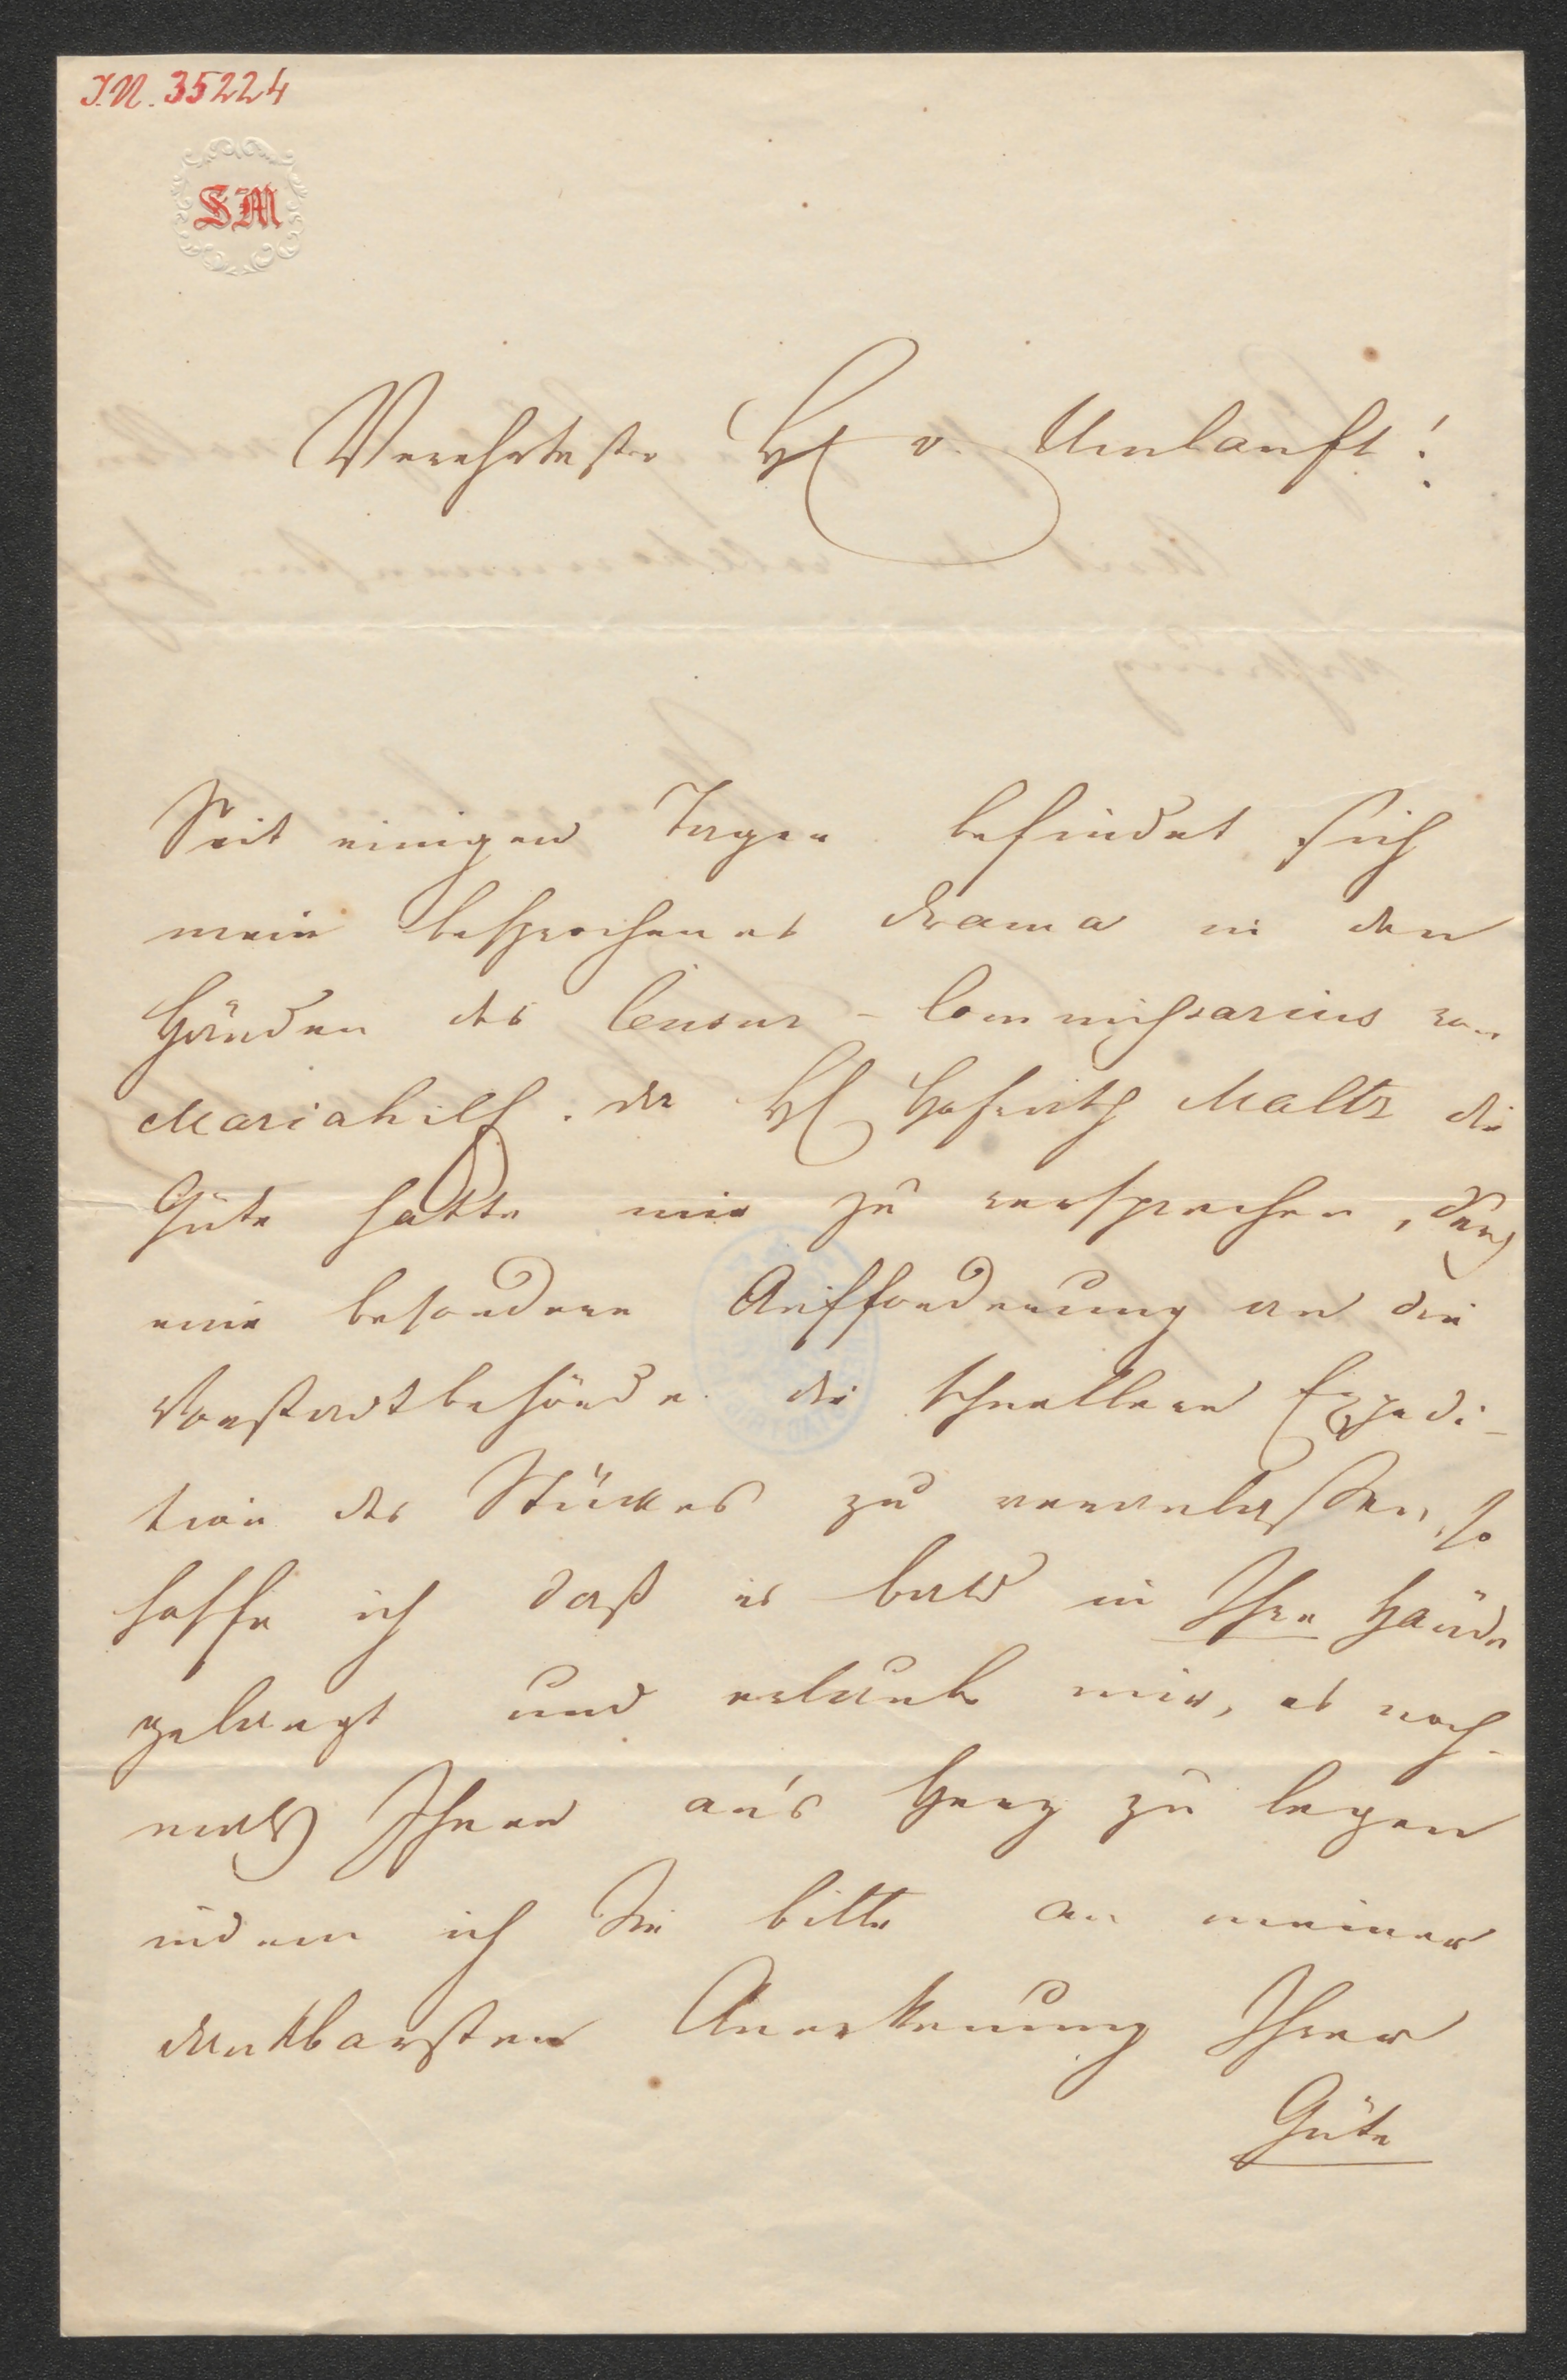 I.N. 35224
SM
Verehrtester H v. Umlauft!
Seit einigen Tagen befindet sich
mein besprochenes Drama in den
Händen des Censur-Commissarius von
Mariahilf. Da H Hofrath Maltz die
Güte hatte mir zu versprechen, durch
eine besondere Aufforderung an die
Vorstadtbehörde die schnellere Expedi-
tion des Stückes zu veranlassen, so
hoffe ich daß es bald in Ihre Hände
gelangt und erlaube mir, es noch-
mals Ihnen an's Herz zu legen
indem ich Sie bitte an meiner
dankbarsten Anerkennung Ihrer
Güte